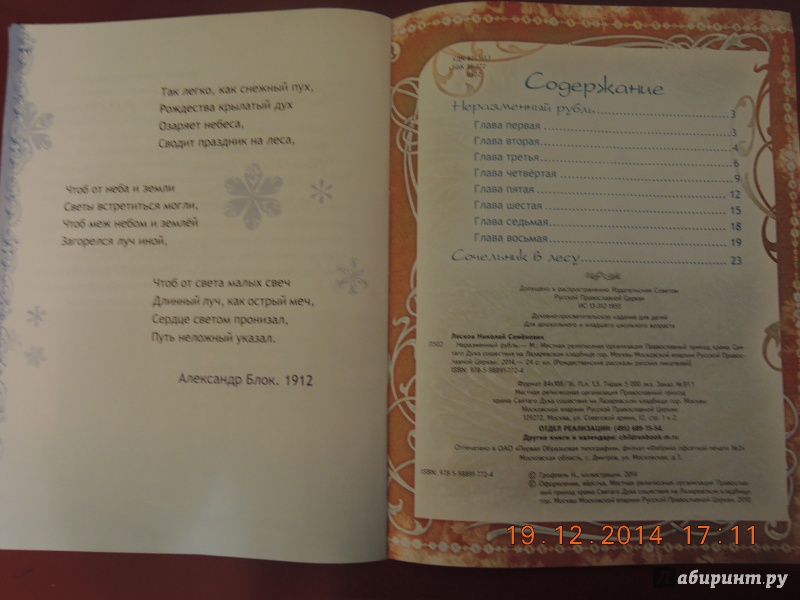 Так легко, как снежный пух,
Рождества крылатый дух
Озаряет небеса,
Сводит праздник на леса,
Чтоб от неба и земли
Светы встретиться могли,
Чтоб меж небом и землёй
Загорелся луч иной,
Чтоб от света малых свеч
Длинный луч, как острый меч,
Сердце светом пронизал,
Путь неложный указал.
Александр Блок. 1912
Содержание
Неразменный рубль 3
Глава первая 3
Глава вторая 4
Глава третья 6
Глава четвёртая 9
Глава пятая 12
Глава шестая 15
Глава седьмая 18
Глава восьмая 19
Сочельник в лесу 23
Допущено к распространению Издательским Советом
Русской Православной Церкви
ИС 13-312 1935
Духовно-просветительское издание для детей
Для дошкольного и младшего школьного возраста
Лесков Николай Семёнович
Неразменный рубль. — М.: Местная религиозная организация Православный приход храма Свя-
того Духа сошествия на Лазаревском кладбище гор. Москвы Московской епархии Русской Правос-
лавной Церкви, 2014. — 24 с. (Рождественские рассказы русских писателей)
ISBN 978-5-98891-772-4
Формат 84х108/16. П.л. 1,5. Тираж 5 000 экз. Заказ № 811
Местная религиозная организация Православный приход
храма Святаго Духа сошествия на Лазаревском кладбище гор. Москвы
Московской епархии Русской Православной Церкви
129272, Москва, ул. Советской армии, 12, стр. 1 и 2.
ОТДЕЛ РЕАЛИЗАЦИИ: (495) 689-15-54.
Другие книги и календари: childrenbook-m.ru
Отпечатано в ОАО «Первая Образцовая типография», филиал «Фабрика офсетной печати №2»
Московская область, г. Дмитров, ул. Московская, д.3.
ISBN 978-5-98891-772-4
© Н., иллюстрации. 2014
© Оформление, вёрстка, Местная религиозная организация Православ-
ный приход храма Святаго Духа сошествия на Лазаревском кладбище
гор. Москвы Московской епархии Русской Православной Церкви,
19.12.2014 17:11
Лабиринт.ру